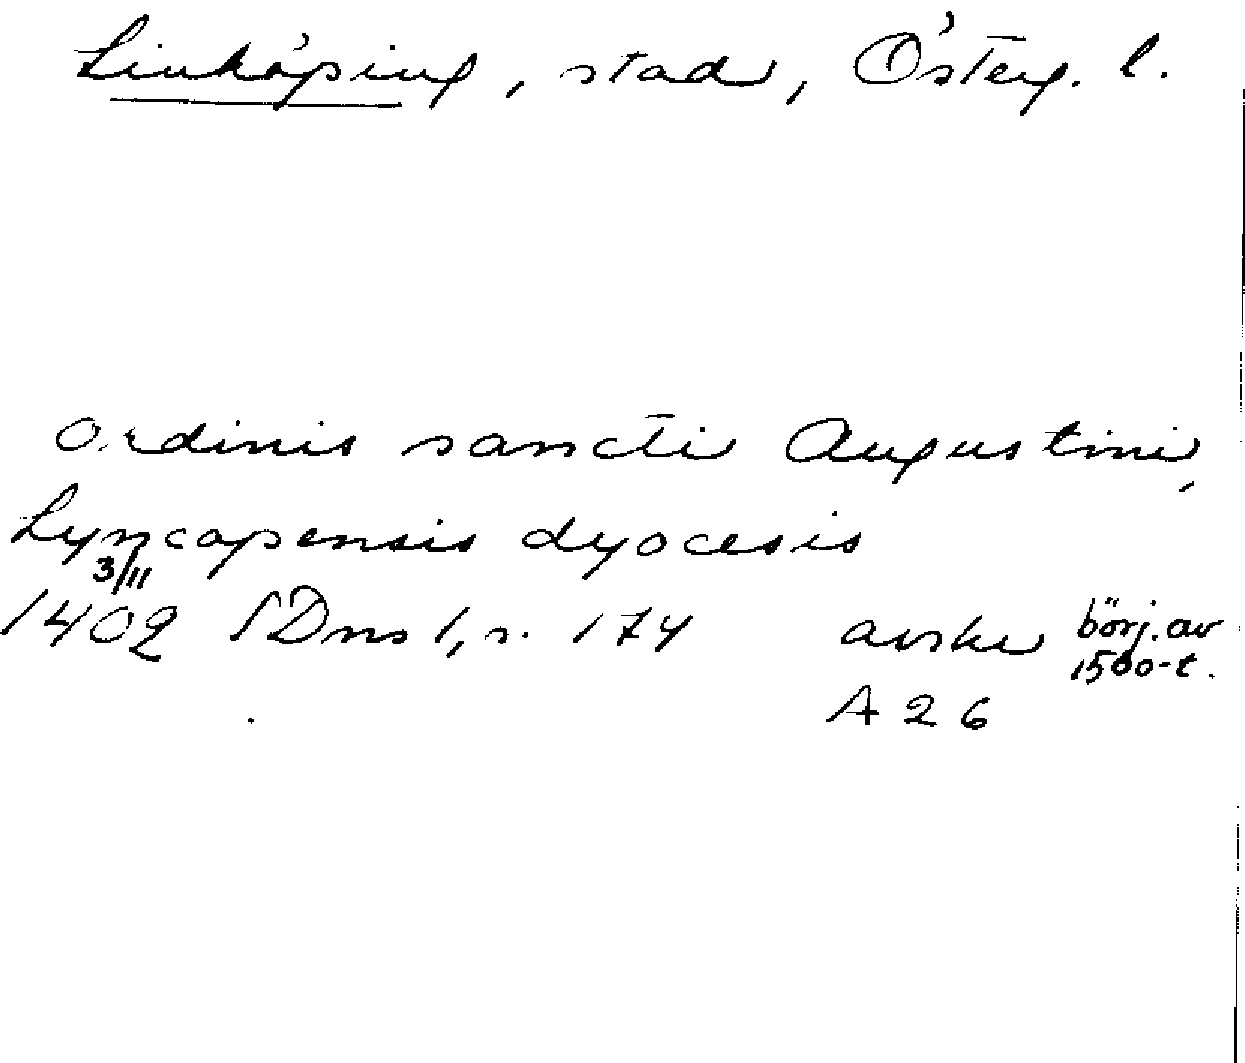 Linköping, stad, Österg. l.
Ordinis sancti Augustini,
Lyncopensis dyocesis
3/11
1402 SDns 1, s. 174 avskr börj. av
1500-t.
A 26